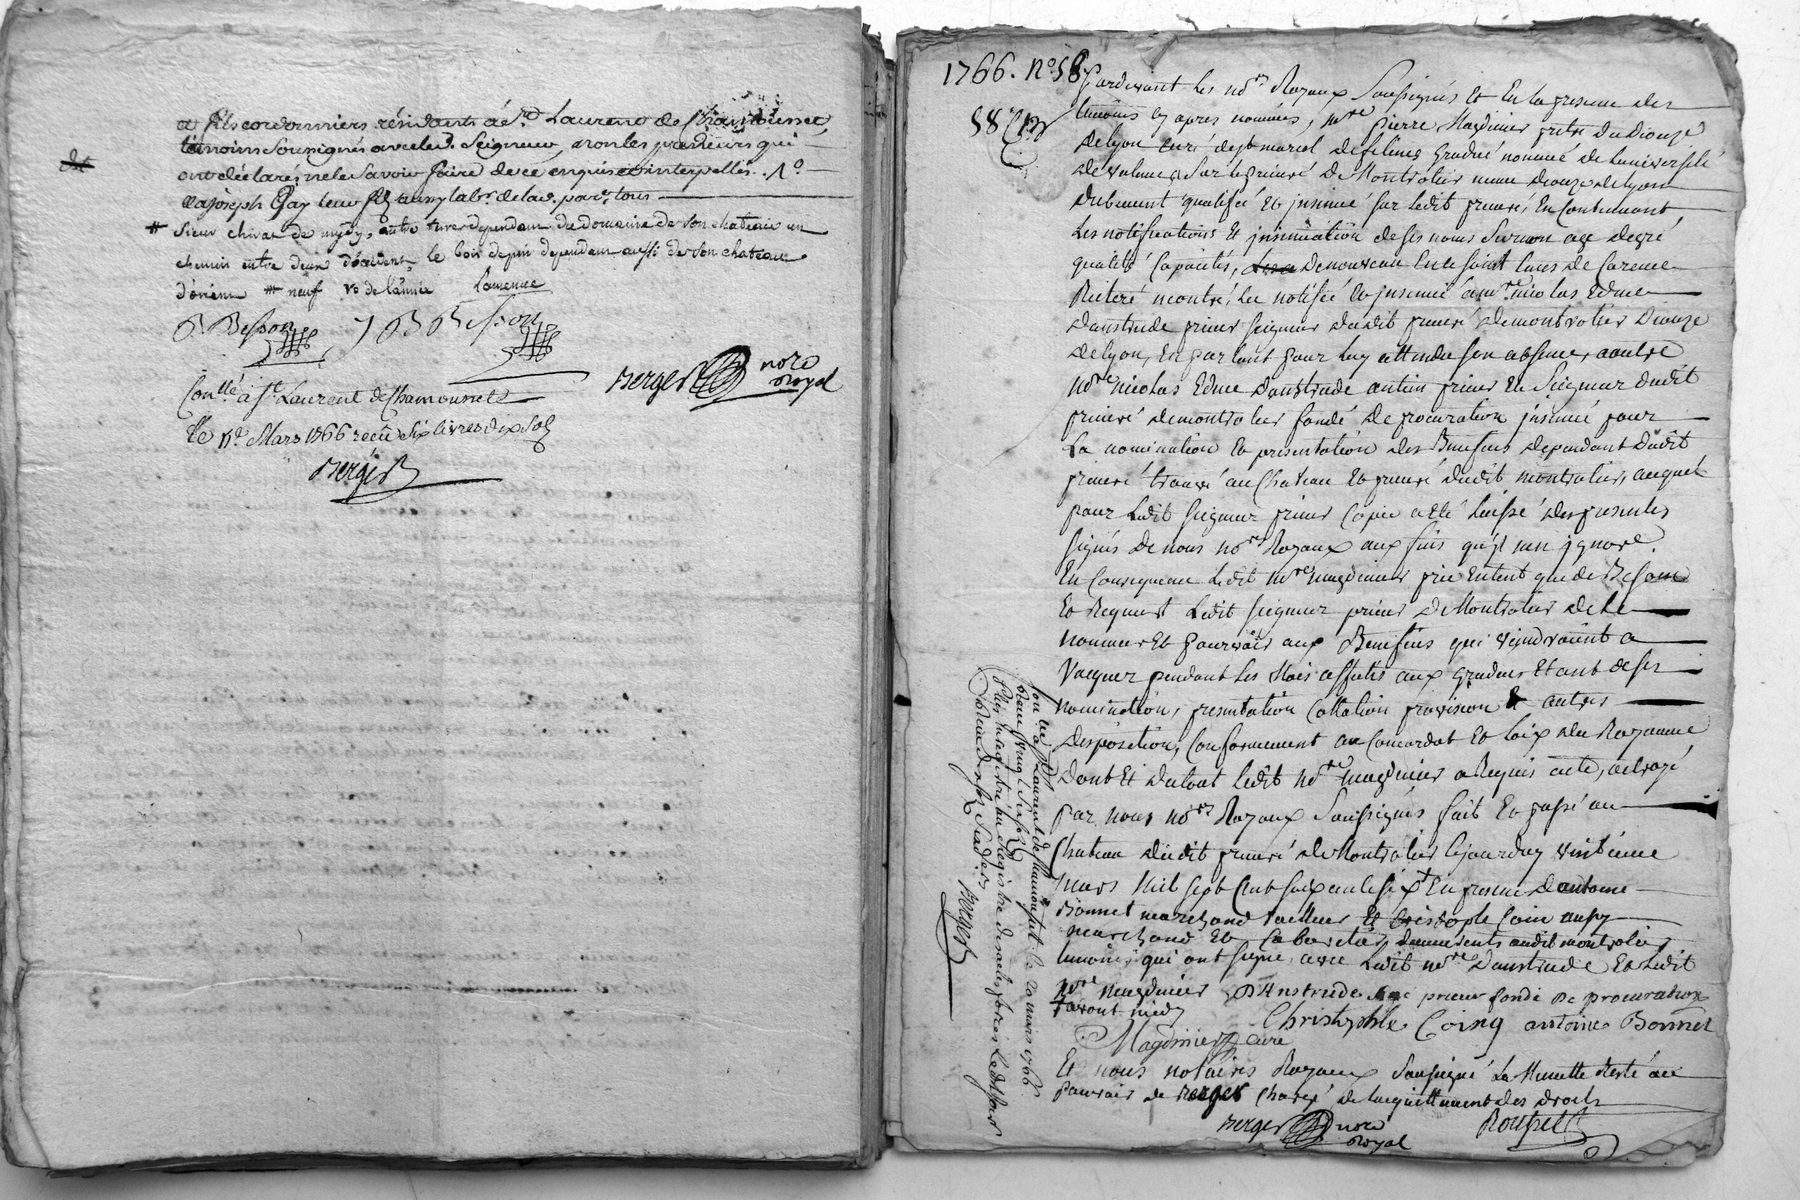 et fils cordonniers résidants à St Laurent de Chamousset,
témoins soussignés avec led. Seigneur, non les preneurs qui
ont déclaré ne le savoir faire de ce enquis et interpellés. 1º
a joseph Gay leur fils aussy labr. de lad. parr. tous
# Sieur chirat de entre terre dependant du domaine de son chateau un
chemin entre deux d'occident, le bois de pin dependant aussi de son chateau
d'orient # neuf vº de l'année Laurence
P Besson J B Besson
Berger nore
Royal
Conllé à St Laurent de Chamousset
le Mars 1766 recu six livres dix sols
Berger
1766. Nº 58
58
Pardevant les nores Royaux soussignés et en la presence des
temoins cy apres nommés, mre pierre Magdinier pretre du Dioceze
de Lyon curé de st marcel de felines gradué nommé de l'université
de valence sur le prieuré de Montrotier meme dioceze de Lyon
dubement qualifié et insinué sur ledit prieuré, en continuant
les notifications et insinuation de ses noms surnom age degré
qualité capacités, de nouveau en le saint tems de Careme
Reiteré montré, et notifié et insinué a mre nicolas Edme
Danstrude prieur seigneur dudit prieuré de montrotier Dioceze
de Lyon, en parlant pour luy attendu son absence, a autre
mre nicolas Edme Danstrude antien prieur et Seigneur dudit
prieuré de montrotier fondé de procuration insinué pour
la nomination et presentation des Benefices dependant dudit
prieuré trouvé au Chateau et prieuré dudit montrotier, auquel
pour ledit seigneur prieur Copie a eté laissé des presentes
signés de nous nores Royaux aux fins qu'il n'en ignore.
En Consequence ledit mre magdinier prie entent que de Besoin
et Requiert ledit seigneur prieur de Montrotier de le
nommer et pourvoir aux Benefices qui viendroient a
Vacquer pendant les Mois affectés aux gradués etant de ses
nomination, presentation Collation provision & autres
disposition, Conformement au Concordat et loix du Royaume
Dont et du tout ledit mre magdinier a Requis acte, octroyé
par nous nores Royaux soussignés fait et passé au
Chateau dudit prieuré de Montrotier le jourduy vintieme
mars mil sept cent soixante six en presence d'antoine
Bonnet marchand tailleur et Cristople Coin aussy
marchand et Cabaretier demeurents audit montrotier
temoins, qui ont signé avec ledit mre Danstrude et ledit
mre magdinier D'Anstrude prieur fondé de procuration
avant midy Christophle Coing antoine Bonnet
Magdinier curé
Et nous notaires Royaux soussigné la Minutte Resté au
Pouvoir de Berger chargé de l'acquittement des droits
Berger nore
Royal
Roussel
Con llé à St Laurent de Chamousset le 20 mars 1766
Reçu vingt six sols
plus enregistré au Registre des actes sujets
Berger